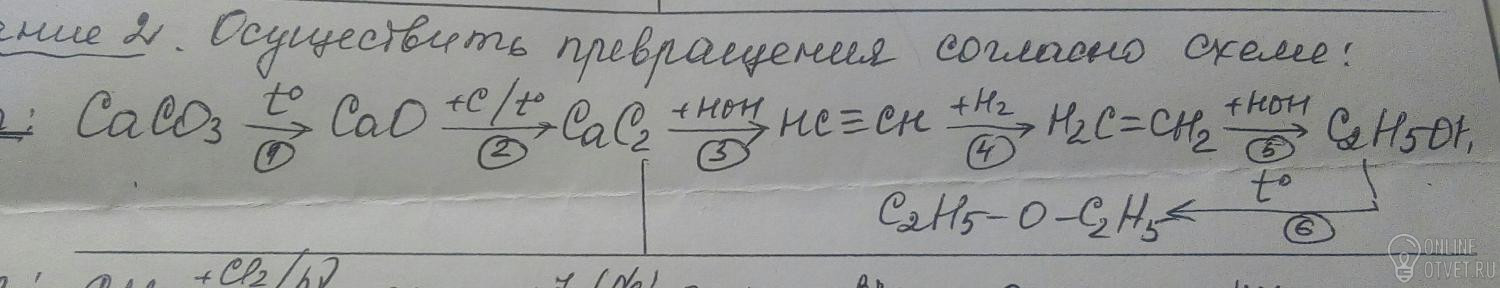 ние 2. Осуществить превращения согласно схеме:
CaCO₃ t° → ① CaO +C/t° → ② CaC₂ +HOH → ③ HC≡CH +H₂ → ④ H₂C=CH₂ +HOH → ⑤ C₂H₅OH,
C₂H₅–O–C₂H₅ ← t° ⑥
+Cl₂/hν
ONLINE
OTVET.RU